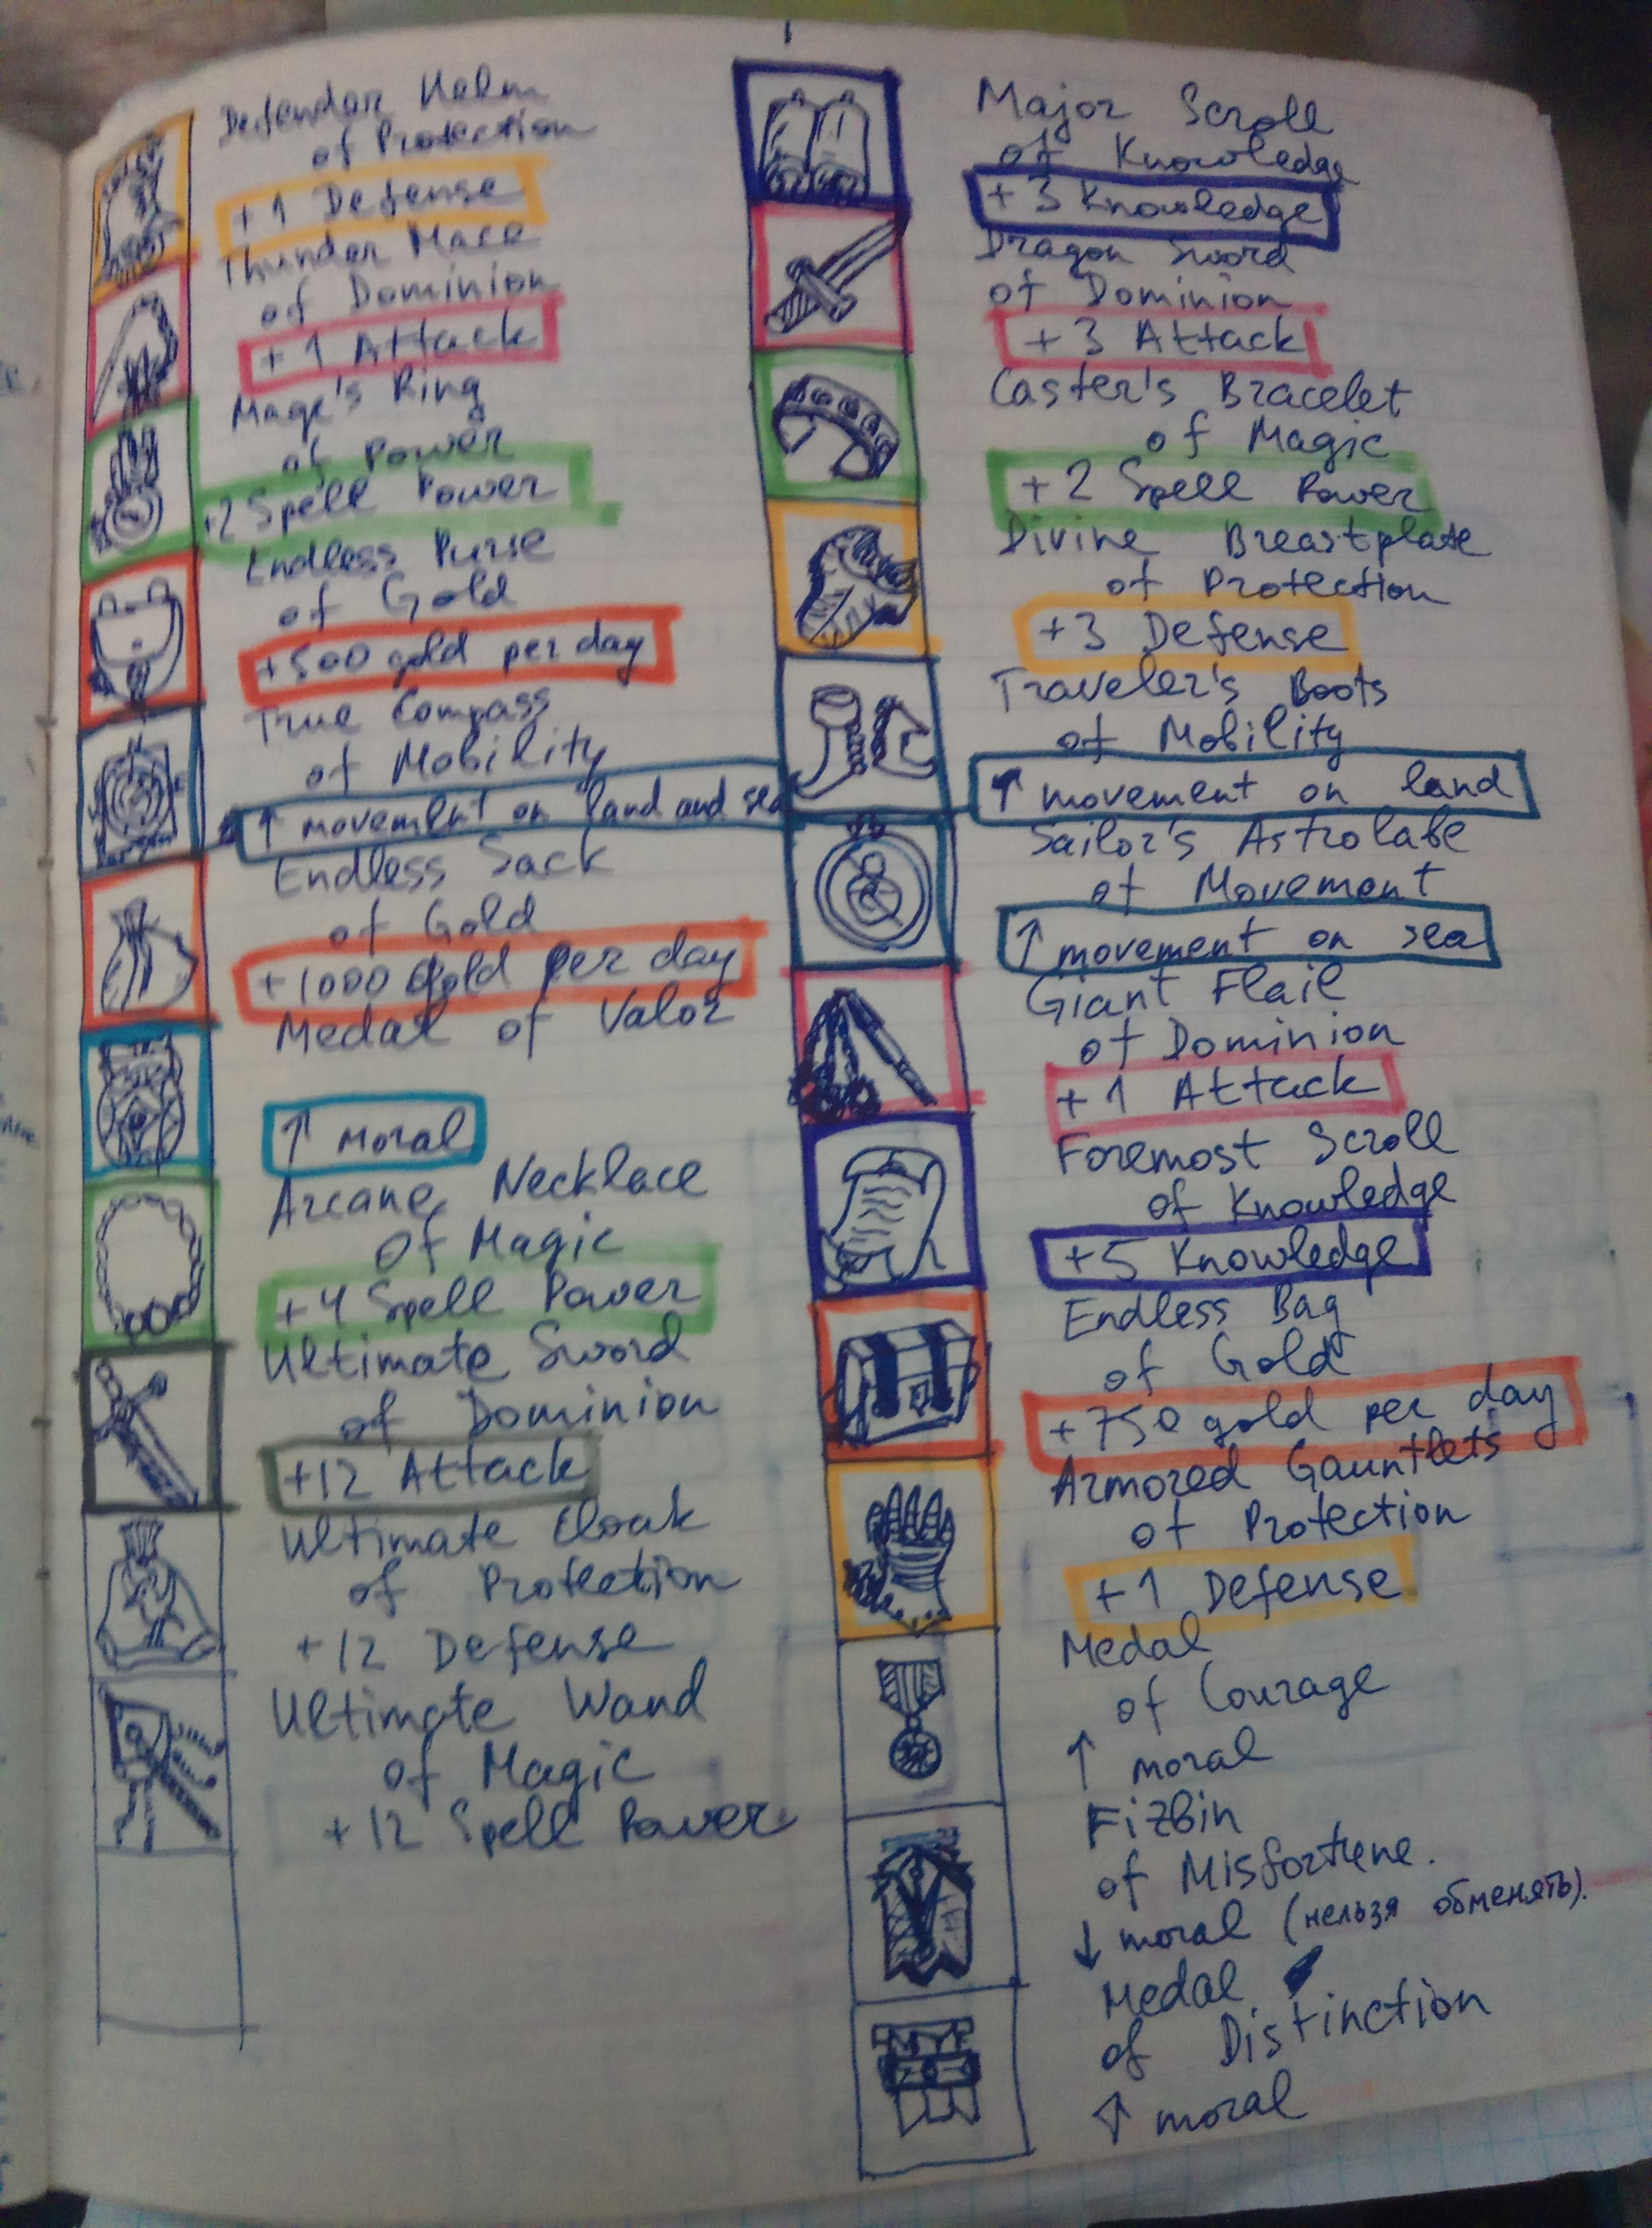 Defender Helm
of Protection
+1 Defense
Thunder Mace
of Dominion
+1 Attack
Mage's Ring
of Power
+2 Spell Power
Endless Purse
of Gold
+500 gold per day
True Compass
of Mobility
↑ movement on land and sea
Endless Sack
of Gold
+1000 gold per day
Medal of Valor
↑ moral
Arcane Necklace
of Magic
+4 Spell Power
Ultimate Sword
of Dominion
+12 Attack
Ultimate Cloak
of Protection
+12 Defense
Ultimate Wand
of Magic
+12 Spell Power
Major Scroll
of Knowledge
+3 Knowledge
Dragon Sword
of Dominion
+3 Attack
Caster's Bracelet
of Magic
+2 Spell Power
Divine Breastplate
of Protection
+3 Defense
Traveler's Boots
of Mobility
↑ movement on land
Sailor's Astrolabe
of Movement
↑ movement on sea
Giant Flail
of Dominion
+1 Attack
Foremost Scroll
of Knowledge
+5 Knowledge
Endless Bag
of Gold
+750 gold per day
Armored Gauntlets
of Protection
+1 Defense
Medal
of Courage
↑ moral
Fizbin
of Misfortune.
↓ moral (нельзя обменять).
Medal
of Distinction
↑ moral